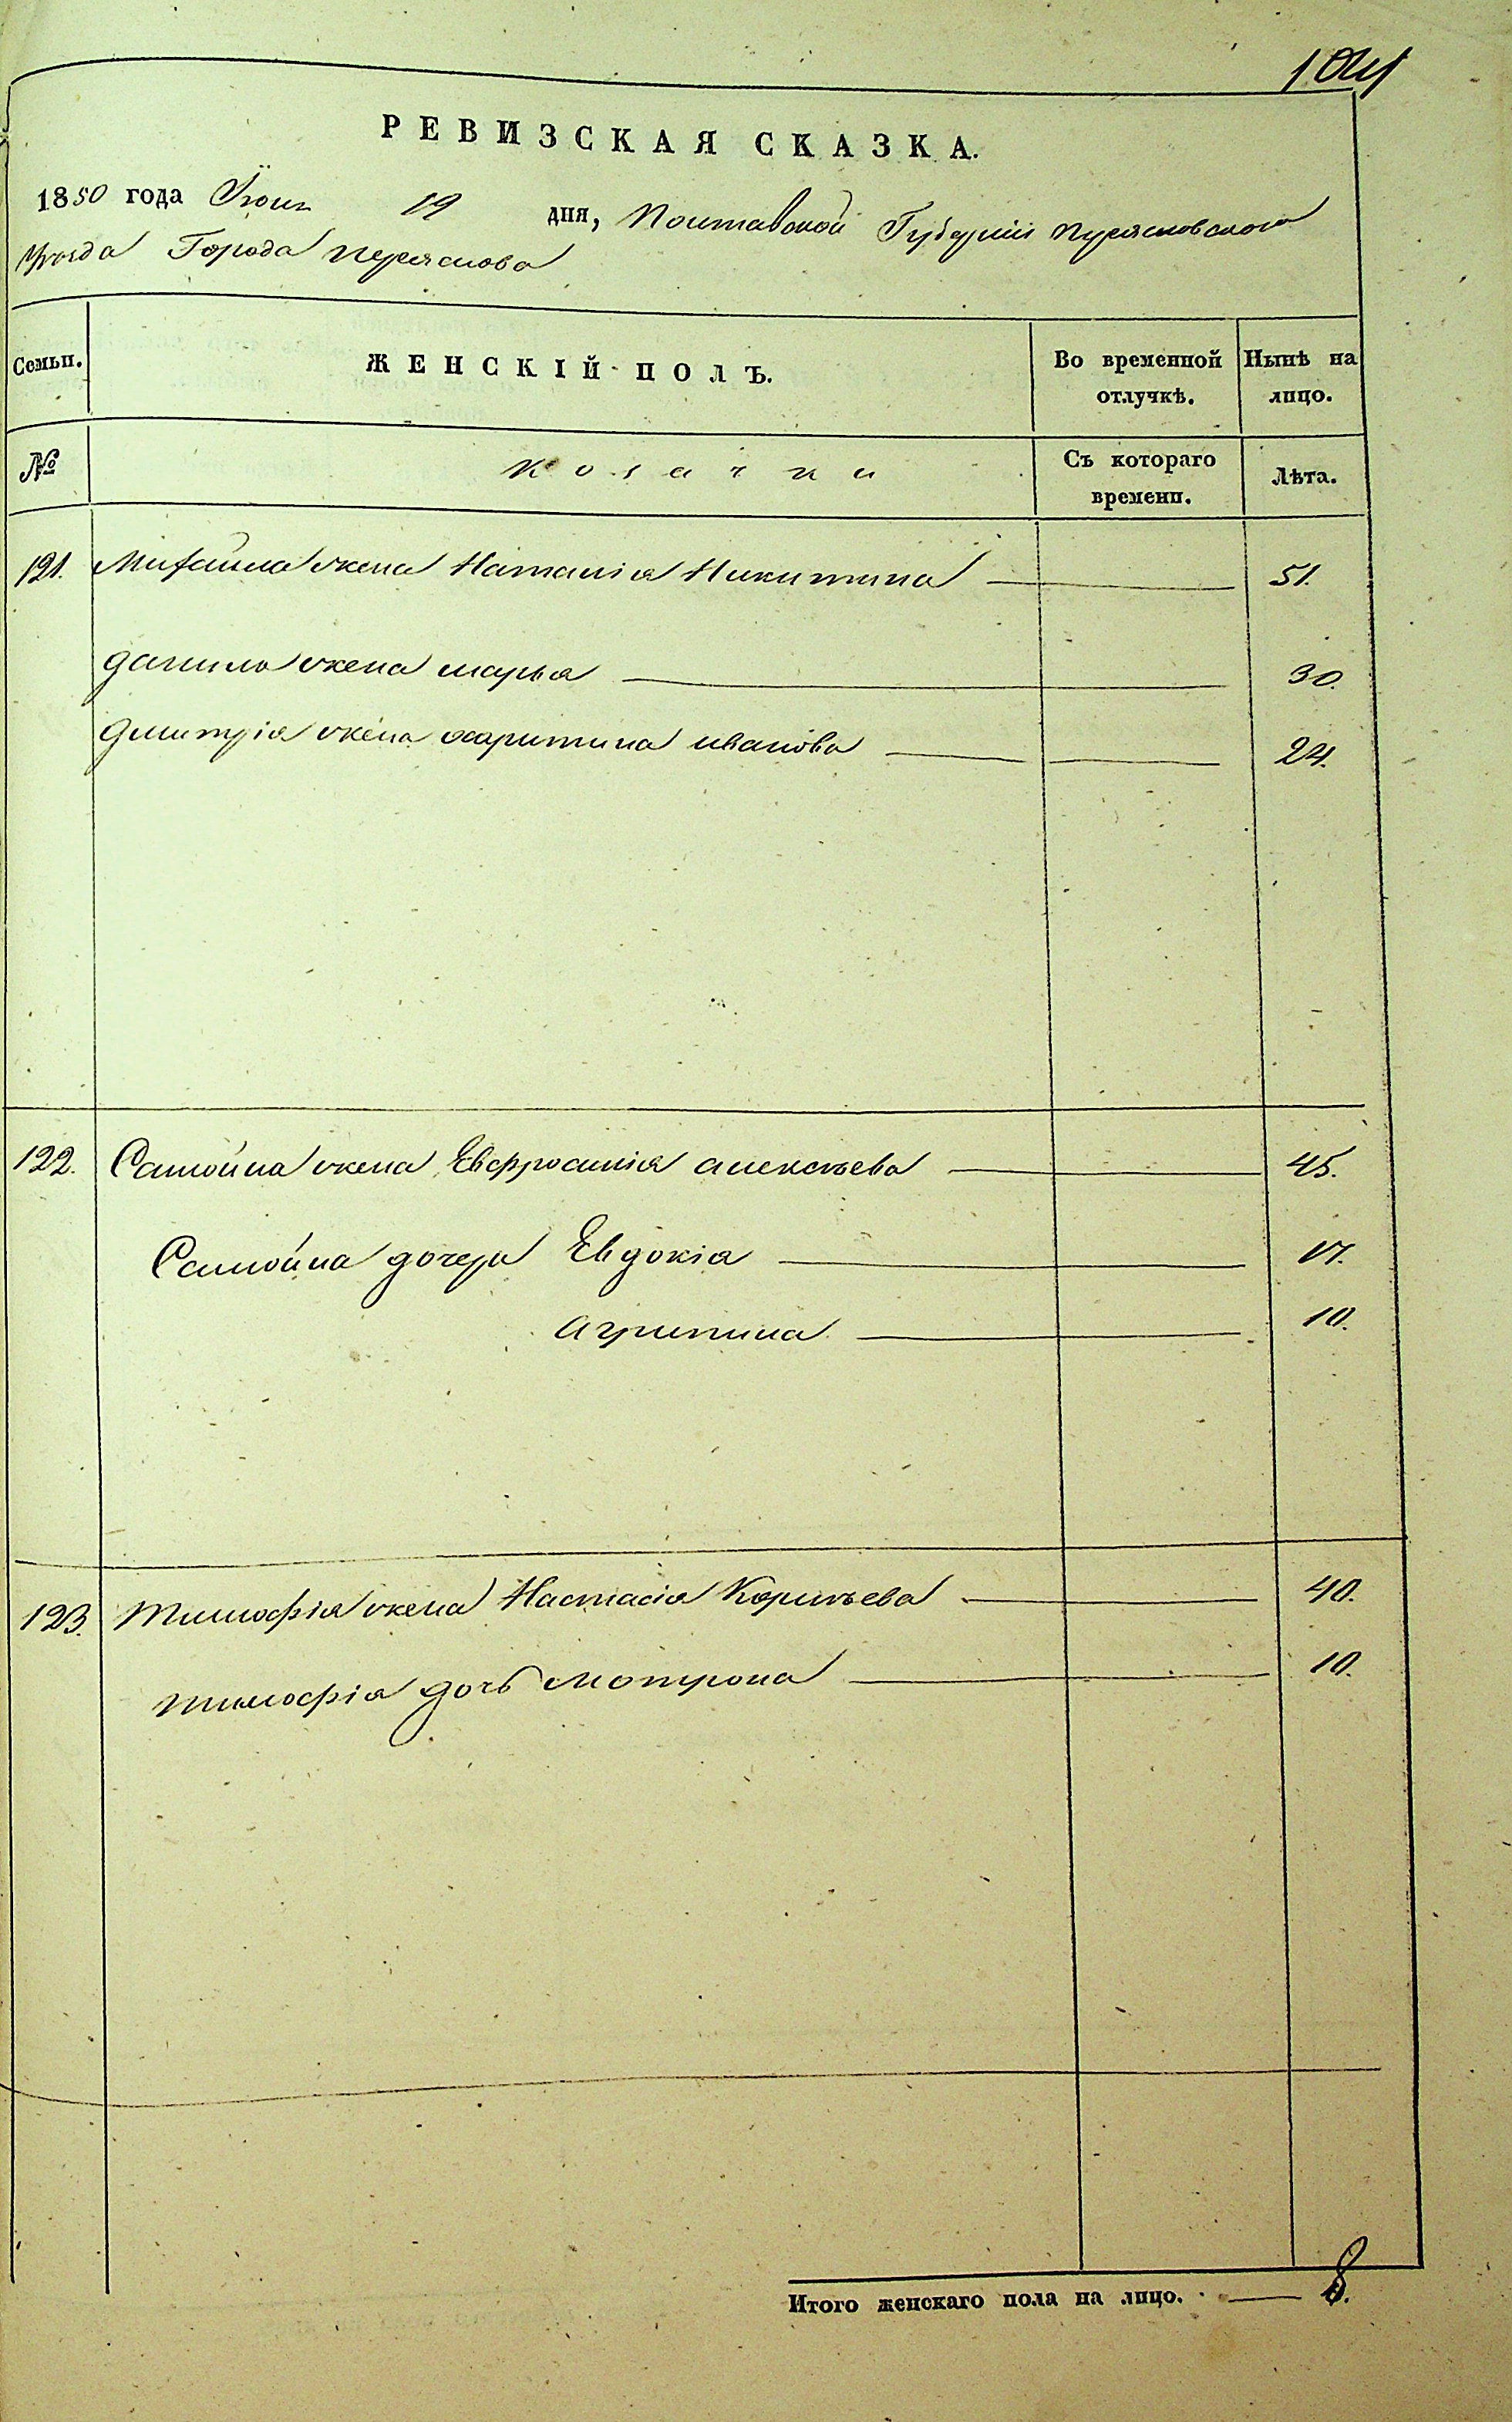 1041
РЕВИЗСКАЯ СКАЗКА.
1850 года Июня 19 дня, Полтавской Губерніи Переясловского
Уезда Города Переяслова
Семьи. ЖЕНСКІЙ ПОЛЪ. Во временной отлучкѣ. Нынѣ на лицо.
№ Козачки Съ котораго времени. Лѣта.
121. Михайла жена Наталія Никитина 51.
Данило жена марья 30.
Дмитрія жена харитина иванова 24.
122. Самойла жена Евфросинія алексѣева 45.
Самойла дочери Евдокія 17.
Агрипина 10.
123. Тимофія жена Настасія Корнѣева 40.
тимофія дочь Мотрона 10.
Итого женскаго пола на лицо. 8.